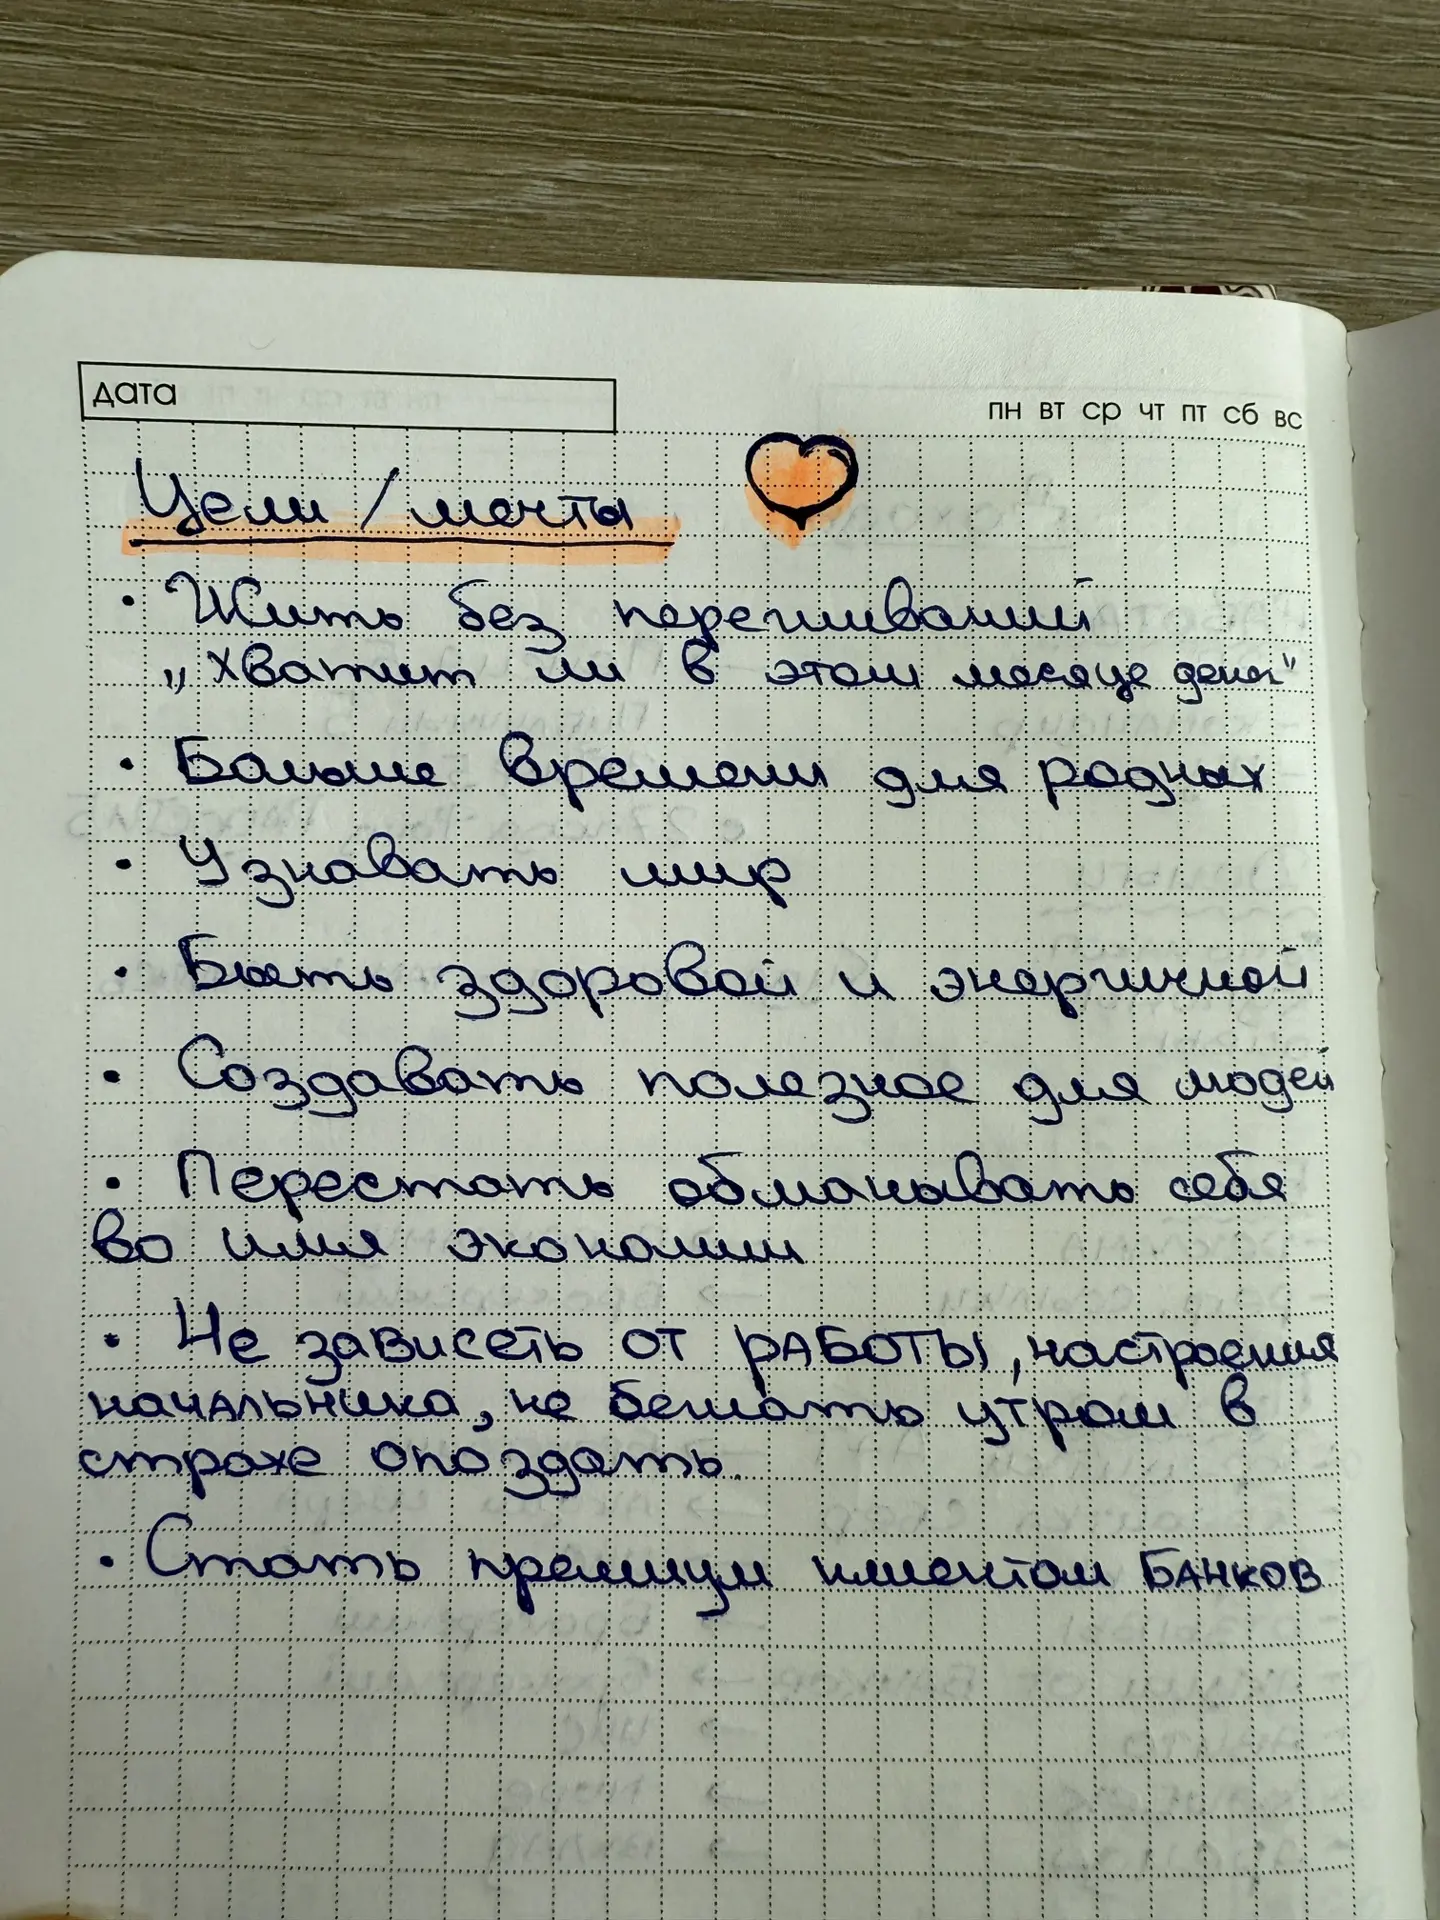 дата
пн вт ср чт пт сб вс
Цели / мечты
• Жить без переживаний
„Хватит ли в этом месяце денег"
• Больше времени для родных
• Узнавать мир
• Быть здоровой и энергичной
• Создавать полезное для людей
• Перестать обманывать себя
во имя экономии
• Не зависеть от РАБОТЫ, настроения
начальника, не бежать утром в
страхе опоздать.
• Стать премиум клиентом БАНКОВ